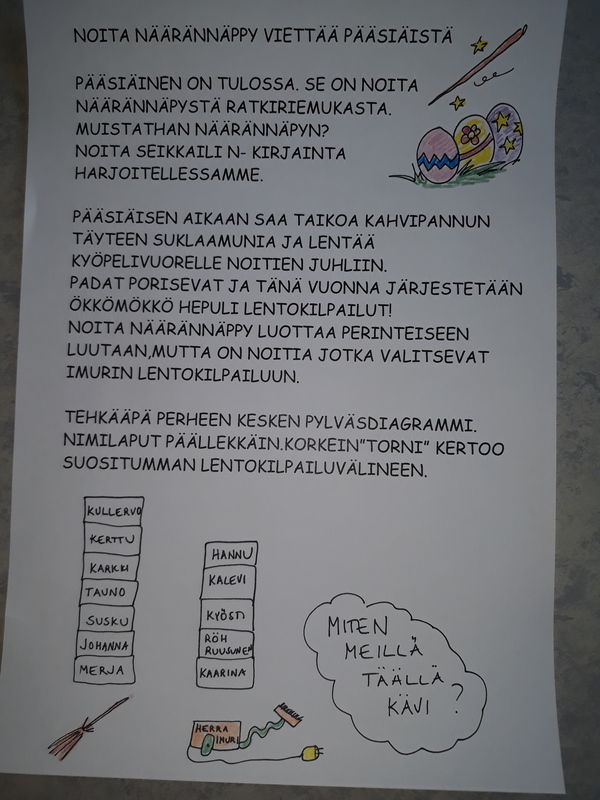 NOITA NÄÄRÄNNÄPPY VIETTÄÄ PÄÄSIÄISTÄ
PÄÄSIÄINEN ON TULOSSA. SE ON NOITA
NÄÄRÄNNÄPYSTÄ RATKIRIEMUKASTA.
MUISTATHAN NÄÄRÄNNÄPYN?
NOITA SEIKKAILI N- KIRJAINTA
HARJOITELLESSAMME.
PÄÄSIÄISEN AIKAAN SAA TAIKOA KAHVIPANNUN
TÄYTEEN SUKLAAMUNIA JA LENTÄÄ
KYÖPELIVUORELLE NOITIEN JUHLIIN.
PADAT PORISEVAT JA TÄNÄ VUONNA JÄRJESTETÄÄN
ÖKKÖMÖKKÖ HEPULI LENTOKILPAILUT!
NOITA NÄÄRÄNNÄPPY LUOTTAA PERINTEISEEN
LUUTAAN,MUTTA ON NOITIA JOTKA VALITSEVAT
IMURIN LENTOKILPAILUUN.
TEHKÄÄPÄ PERHEEN KESKEN PYLVÄSDIAGRAMMI.
NIMILAPUT PÄÄLLEKKÄIN.KORKEIN"TORNI" KERTOO
SUOSITUMMAN LENTOKILPAILUVÄLINEEN.
KULLERVO
KERTTU
KARKKI
TAUNO
SUSKU
JOHANNA
MERJA
HANNU
KALEVI
KYÖSTI
RÖH
RUUSUNEN
KAARINA
MITEN
MEILLÄ
TÄÄLLÄ
KÄVI ?
HERRA
IMURI